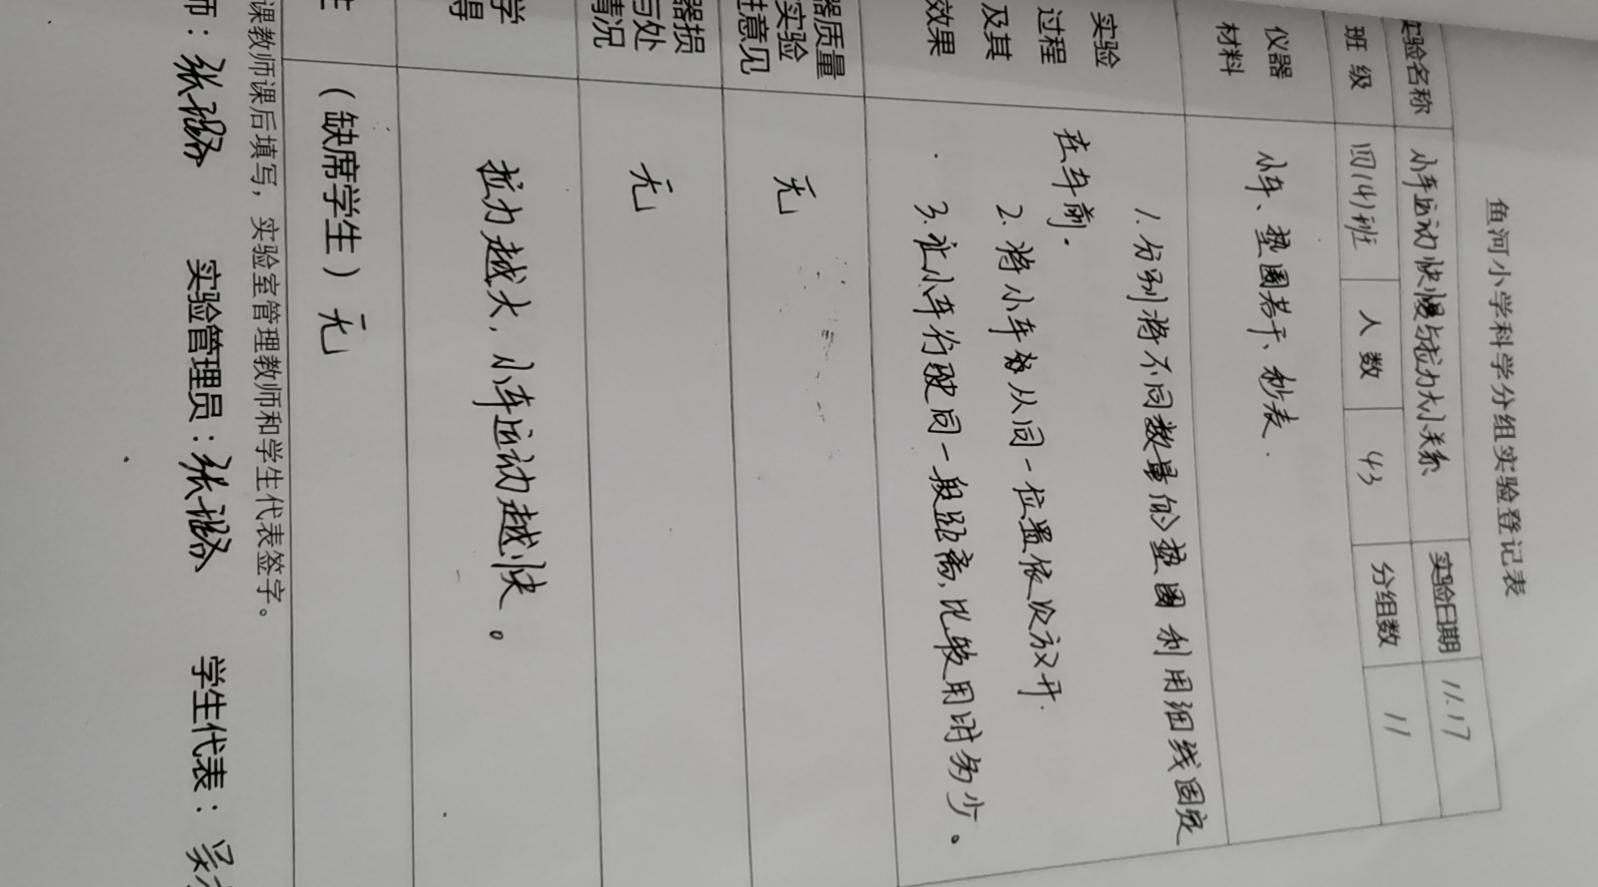 鱼河小学科学分组实验登记表
实验名称 小车运动快慢与拉力大小关系 实验日期 11.17
班级 四(4)班 人数 43 分组数 11
仪器材料 小车、垫圈若干、秒表.
实验过程及其效果
1. 分别将不同数量的垫圈利用细线固定
在车前.
2. 将小车从同一位置依次放开.
3. 让小车行驶同一段距离,比较用时多少。
器质量
实验
意见 无
器损
与处
情况 无
学
得 拉力越大,小车运动越快。
(缺席学生) 无
课教师课后填写,实验室管理教师和学生代表签字。
师:张 实验管理员:张 学生代表:吴